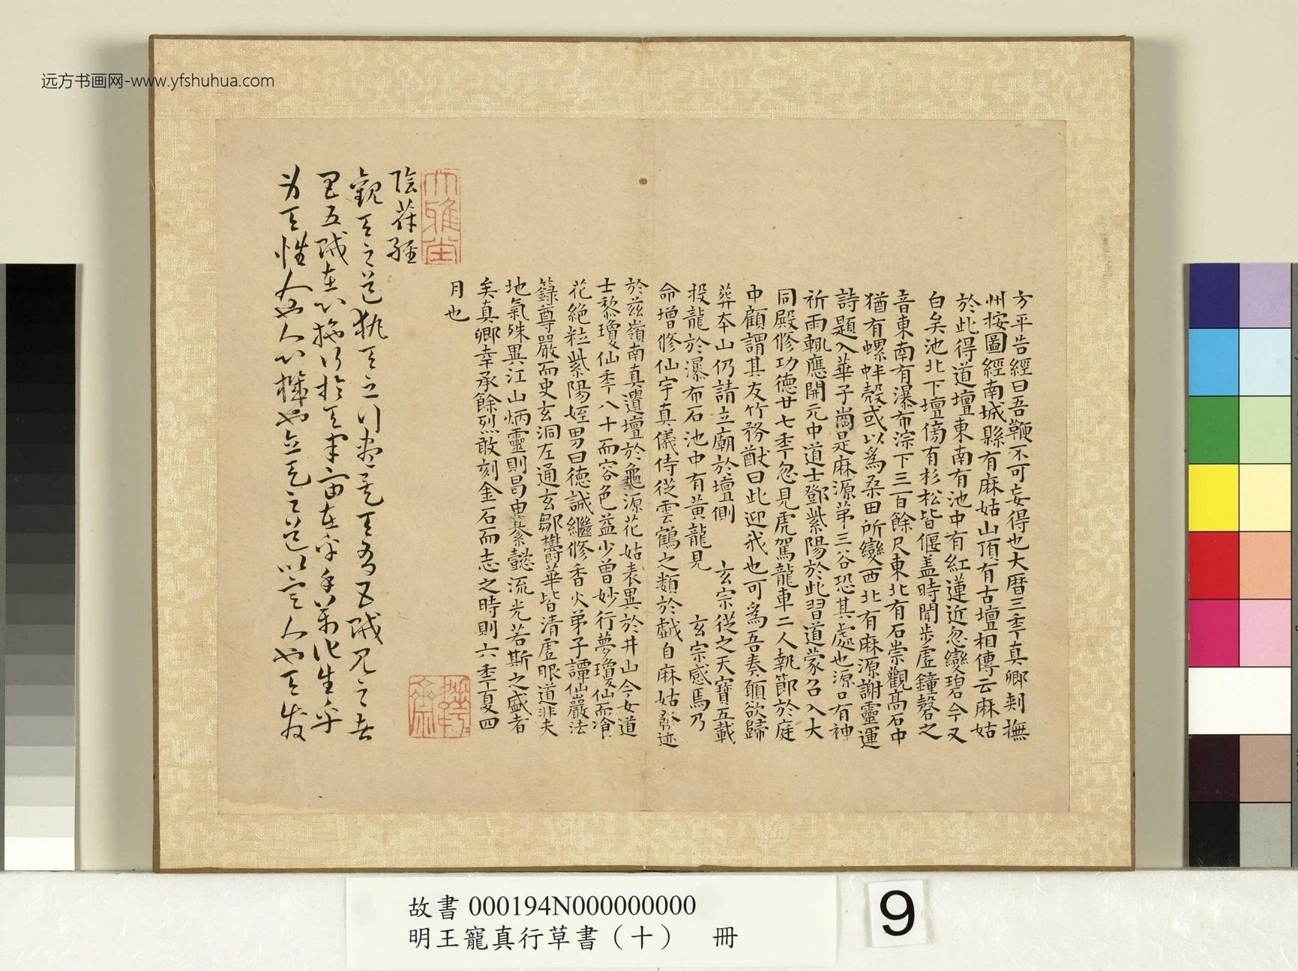 远方书画网-www.yfshuhua.com
方平告經曰吾鞭不可妄得也大曆三年真卿刺撫
州按圖經南城縣有麻姑山頂有古壇相傳云麻姑
於此得道壇東南有池中有紅蓮近忽變碧今又
白矣池北下壇傍有杉松皆偃盖時聞步虛鐘磬之
音東南有瀑布淙下三百餘尺東北有石崇觀高石中
猶有螺蚌殼或以為桑田所變西北有麻源謝靈運
詩題入華子崗是麻源第三谷恐其處也源口有神
祈雨輒應開元中道士鄧紫陽於此習道蒙召入大
同殿修功德廿七年忽見虎駕龍車二人執節於庭
中顧謂其友竹務猷曰此迎我也可為吾奏願欲歸
葬本山仍請立廟於壇側 玄宗從之天寶五載
投龍於瀑布石池中有黃龍見 玄宗感焉乃
命增修仙宇真儀侍從雲鶴之類於戲自麻姑發迹
於茲嶺南真遺壇於龜源花姑表異於井山今女道
士黎瓊仙年八十而容色益少曾妙行夢瓊仙而飡
花絕粒紫陽姪男曰德誠繼修香火弟子譚仙巖法
籙尊嚴而史玄洞左通玄鄒鬱華皆清虛眼道非夫
地氣殊異江山炳靈則曷由纂懿流光若斯之盛者
矣真卿幸承餘烈敢刻金石而志之時則六年夏四
月也
大雅堂
陰符經
觀天之道執天之行盡矣天有五賊見之者
昌五賊在心施行於天宇宙在乎手萬化生乎
身天性人也人心機也立天之道以定人也天發
故書 000194N000000000
明王寵真行草書（十） 冊
9